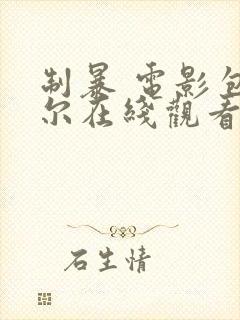 制暴 電影包
尔在綫觀看
石生情